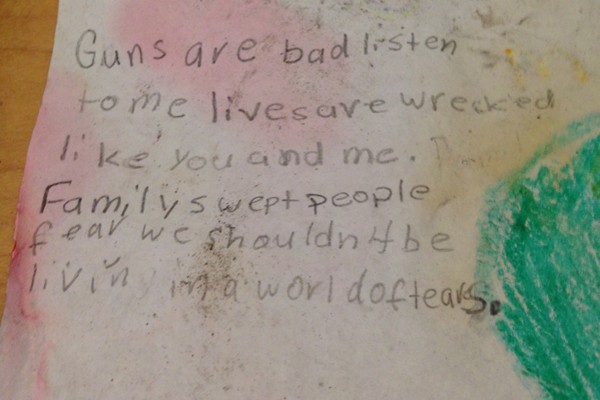 Guns are bad listen
to me lives are wrecked
like you and me.
Family swept people
fear we shouldn't be
livin in a world of tears.